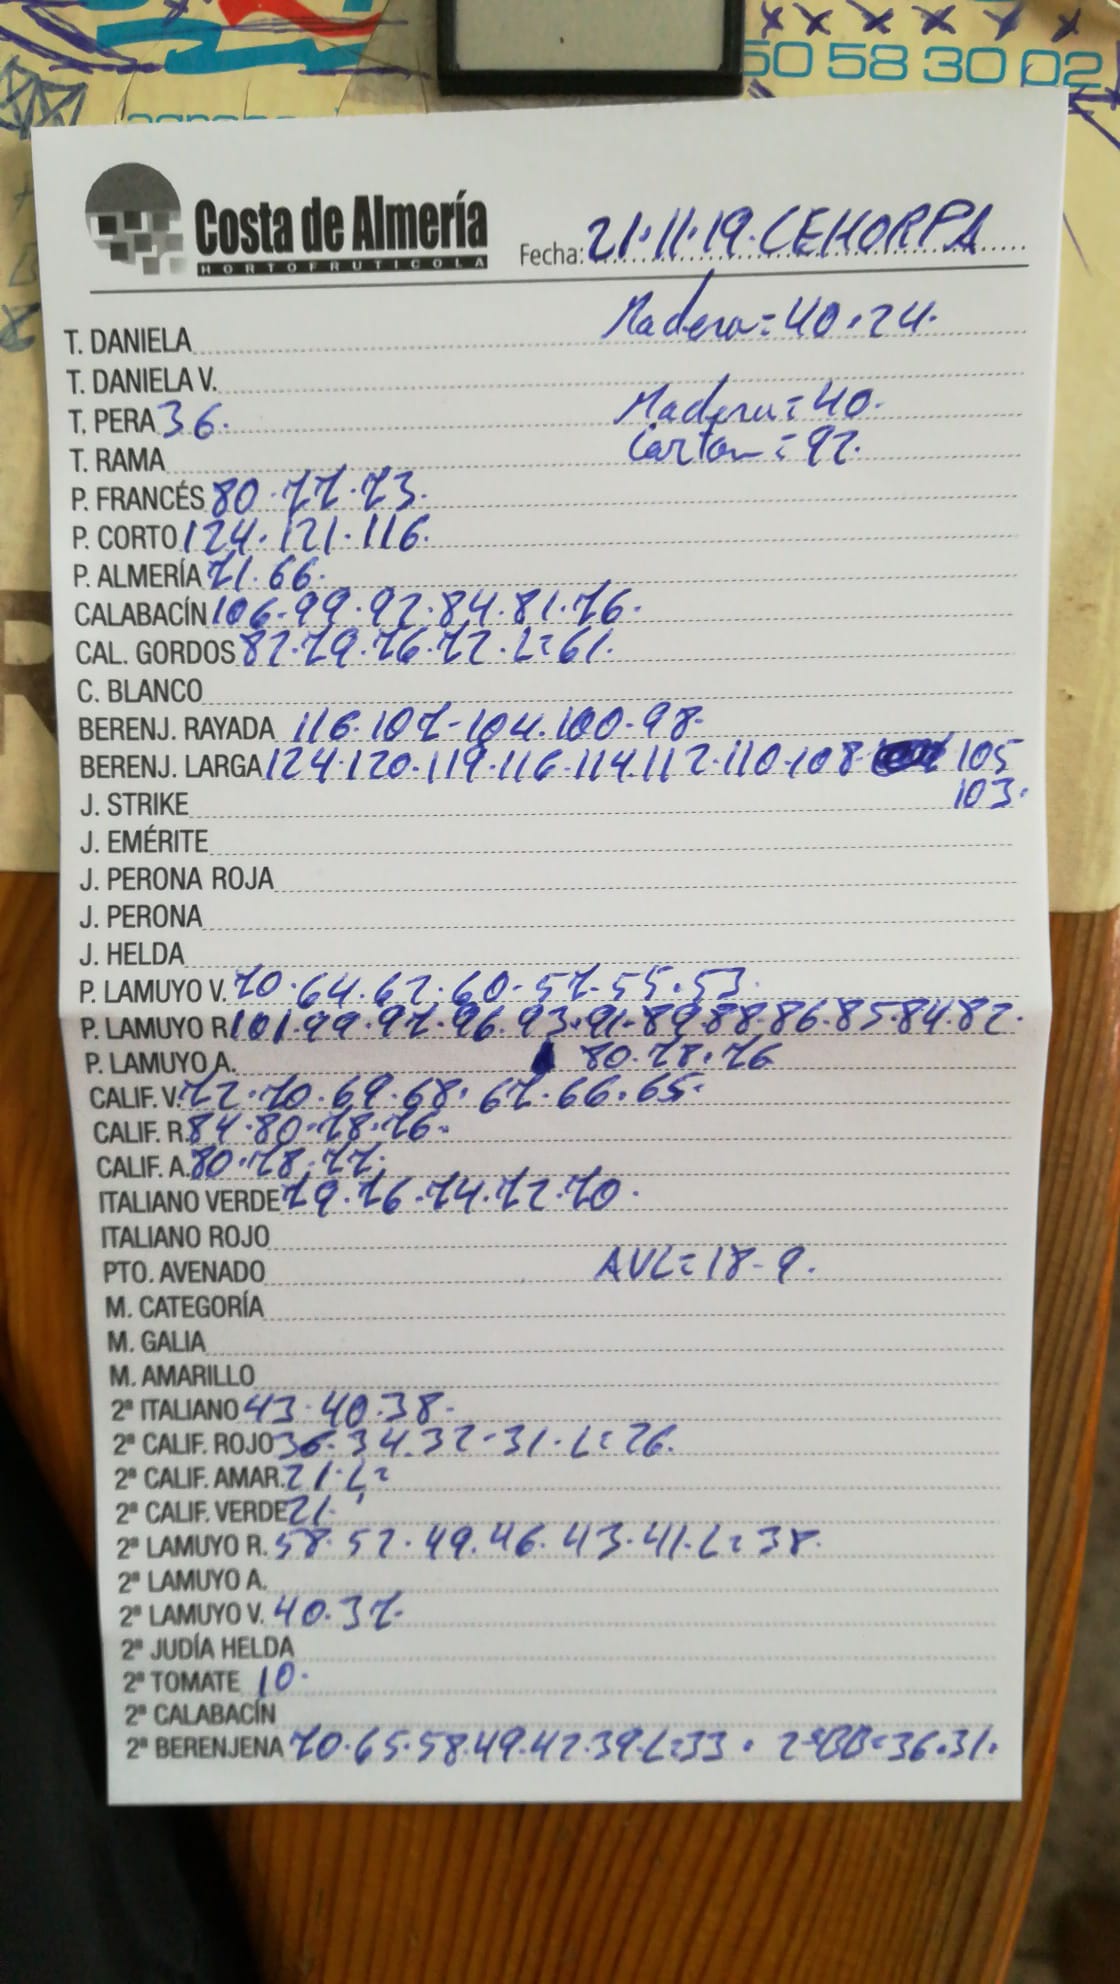 50 58 30 02
Costa de Almería
HORTOFRUTICOLA
Fecha: 21.11.19. CEHORPA
T. DANIELA Madera = 40.24.
T. DANIELA V.
T. PERA 36. Madera = 40.
T. RAMA Carton = 92.
P. FRANCÉS 80.77.73.
P. CORTO 124.121.116.
P. ALMERÍA 71.66.
CALABACÍN 106.99.92.84.81.76.
CAL. GORDOS 82.79.76.72.L=61.
C. BLANCO
BERENJ. RAYADA 116.107-104.100.98.
BERENJ. LARGA 124.120.119.116.114.112.110.108 105
J. STRIKE 103.
J. EMÉRITE
J. PERONA ROJA
J. PERONA
J. HELDA
P. LAMUYO V. 70.64.62.60-57-55.53.
P. LAMUYO R. 101.99.97.96.93.91.89.88.86.85.84.82.
P. LAMUYO A. 80.78.76
CALIF. V. 72.70.69.68.67.66.65.
CALIF. R. 84.80.78.76.
CALIF. A. 80.78.77.
ITALIANO VERDE 79.76.74.72.70.
ITALIANO ROJO
PTO. AVENADO AVL=18-9.
M. CATEGORÍA
M. GALIA
M. AMARILLO
2ª ITALIANO 43.40.38.
2ª CALIF. ROJO 36.34.32.31.L=26.
2ª CALIF. AMAR. 21.L=
2ª CALIF. VERDE 21.
2ª LAMUYO R. 58.52.49.46.43.41.L=38.
2ª LAMUYO A.
2ª LAMUYO V. 40.37.
2ª JUDÍA HELDA
2ª TOMATE 10.
2ª CALABACÍN
2ª BERENJENA 70.65.58.49.42.39.L=33. 36.31.